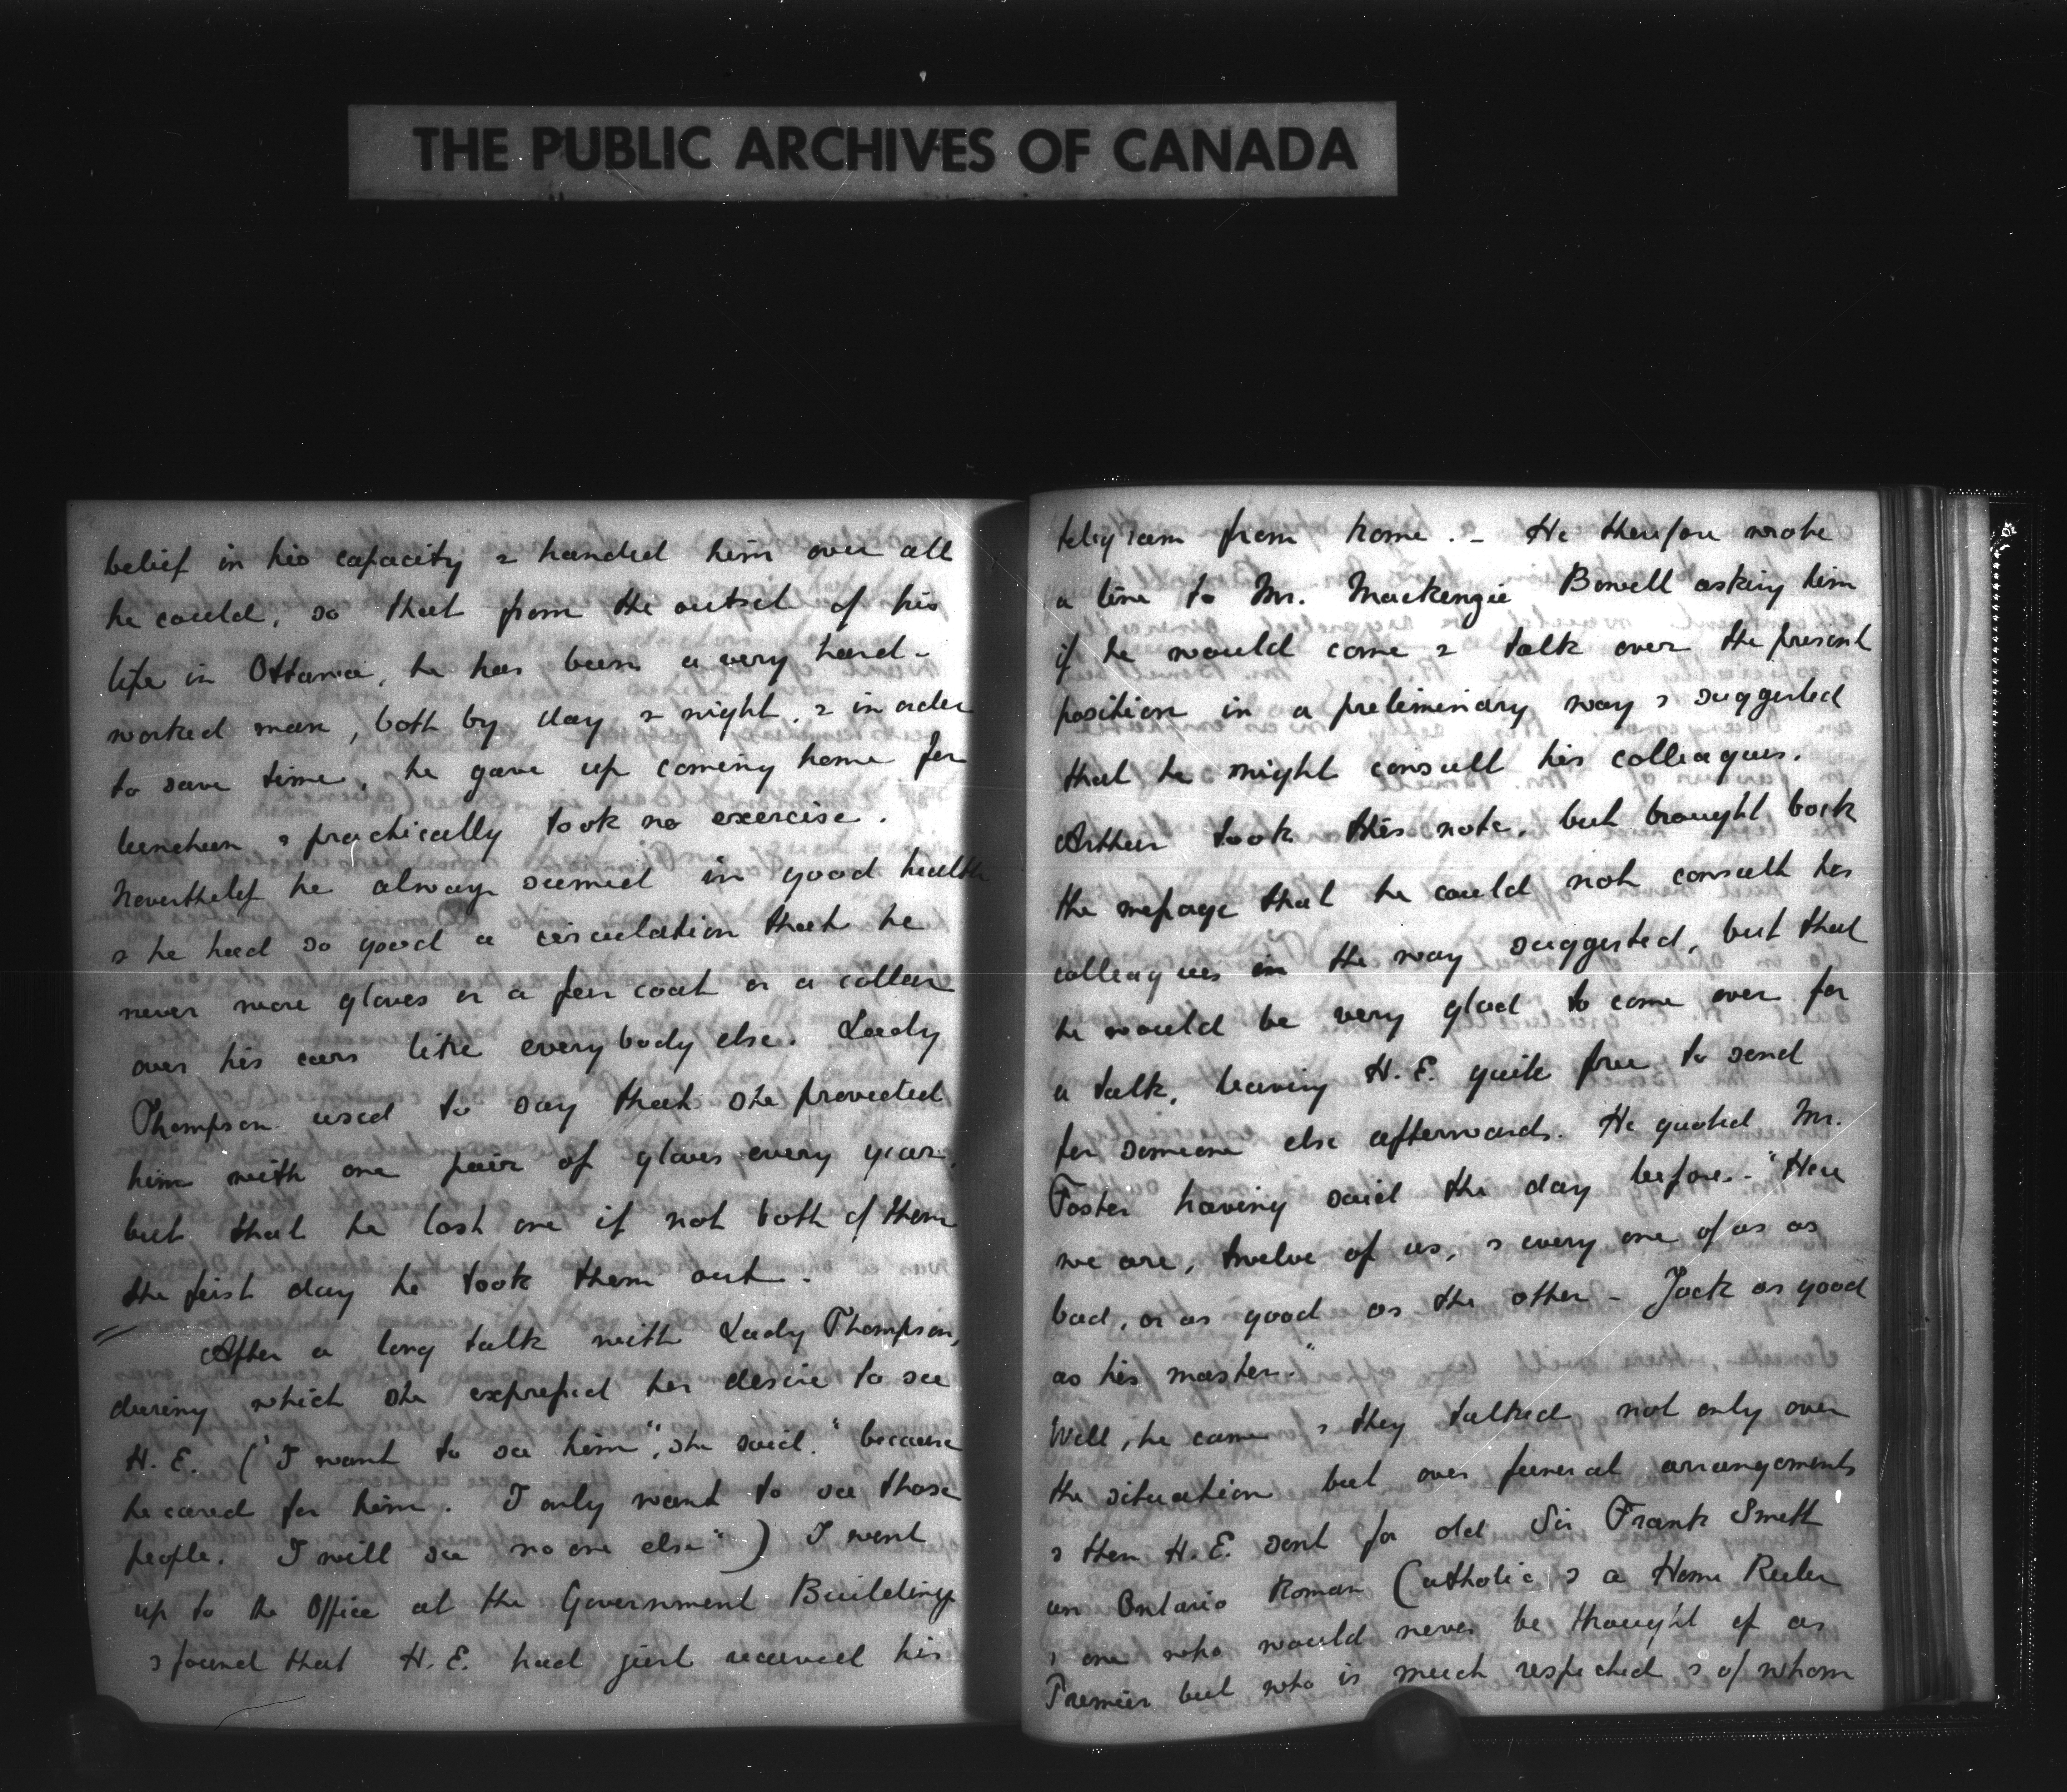 THE PUBLIC ARCHIVES OF CANADA
belief in his capacity & handed him over all
he could, so that from the outset of his
life in Ottawa, he has been a very hard-
worked man, both by day & night, & in order
to save time, he gave up coming home for
luncheon & practically took no exercise.
Nevertheless he always seemed in good health
& he had so good a circulation that he
never wore gloves or a fur coat or a collar
over his ears like everybody else. Lady
Thompson used to say that she provided
him with one pair of gloves every year,
but that he lost one if not both of them
the first day he took them out.
After a long talk with Lady Thompson,
during which she expressed her desire to see
H. E. ("I want to see him", she said. "because
he cared for him. I only want to see those
people. I will see no one else") I went
up to the Office at the Government Buildings
& found that H. E. had just received his
telegram from home. - He therefore wrote
a line to Mr. Mackenzie Bowell asking him
if he would come & talk over the present
position in a preliminary way & suggested
that he might consult his colleagues.
Arthur took this note, but brought back
the message that he could not consult his
colleagues in the way suggested, but that
he would be very glad to come over for
a talk, leaving H. E. quite free to send
for someone else afterwards. He quoted Mr.
Foster having said the day before - "Here
we are, twelve of us, & every one of us as
bad, or as good as the other - Jack as good
as his master."
Well, he came & they talked not only over
the situation but over funeral arrangements
& then H. E. sent for old Sir Frank Smith
an Ontario Roman Catholic & a Home Ruler
& one who would never be thought of as
Premier but who is much respected & of whom